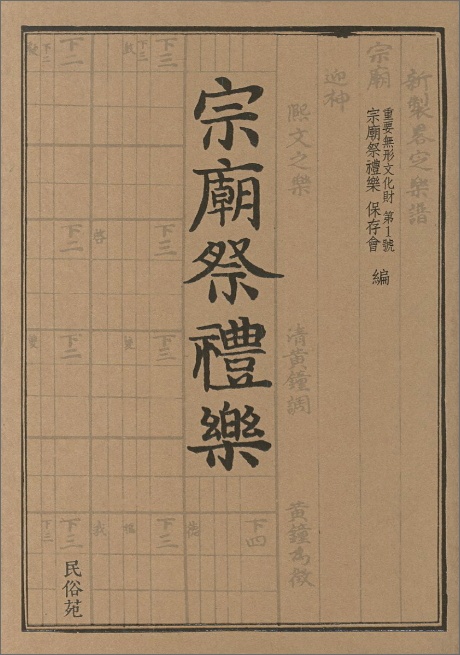 新製略定樂譜
重要無形文化財 第1號
宗廟祭禮樂 保存會 編
宗廟
迎神
熙文之樂
清黃鐘調
黃鐘為徵
宗廟祭禮樂
下三
下二
下二
下三
下二
下三
下二
下三
下四
下三
下三
民俗苑